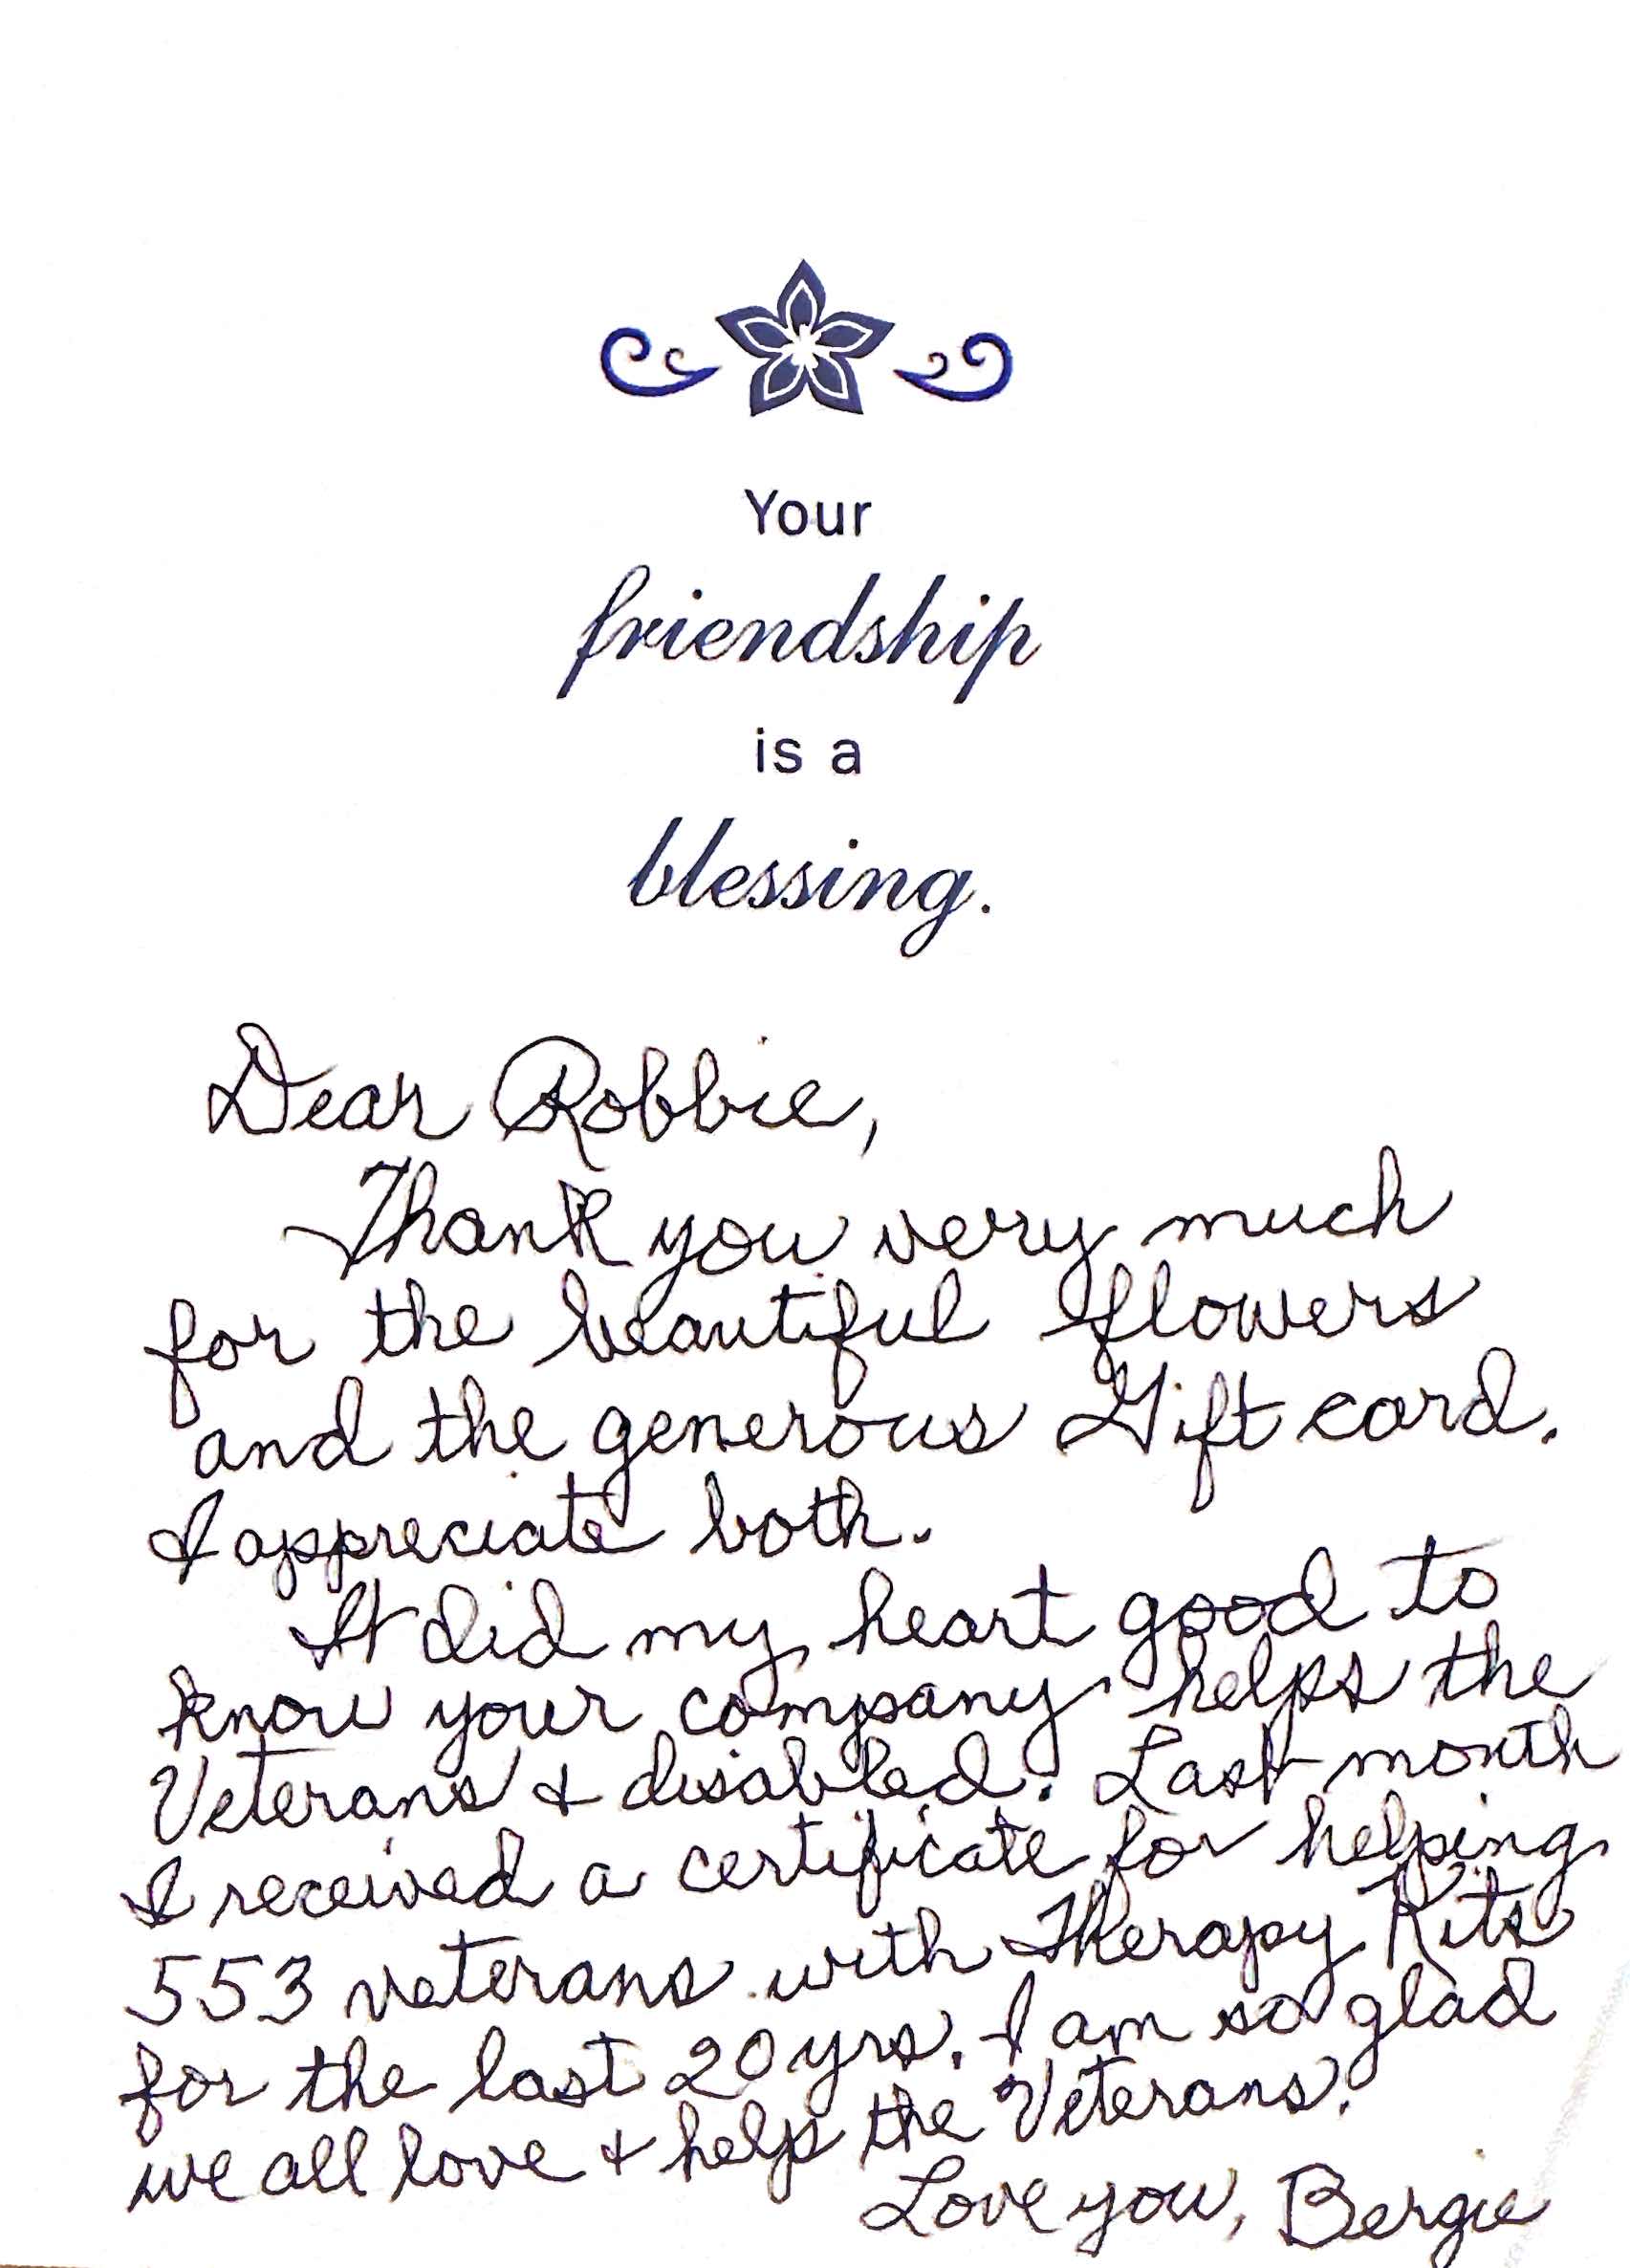 Your
friendship
is a
blessing.
Dear Robbie,
Thank you very much
for the beautiful flowers
and the generous Gift card.
I appreciate both.
It did my heart good to
know your company helps the
Veterans & disabled. Last month
I received a certificate for helping
553 veterans with Therapy Kits
for the last 20 yrs. I am so glad
we all love & help the Veterans.
Love you, Bergie